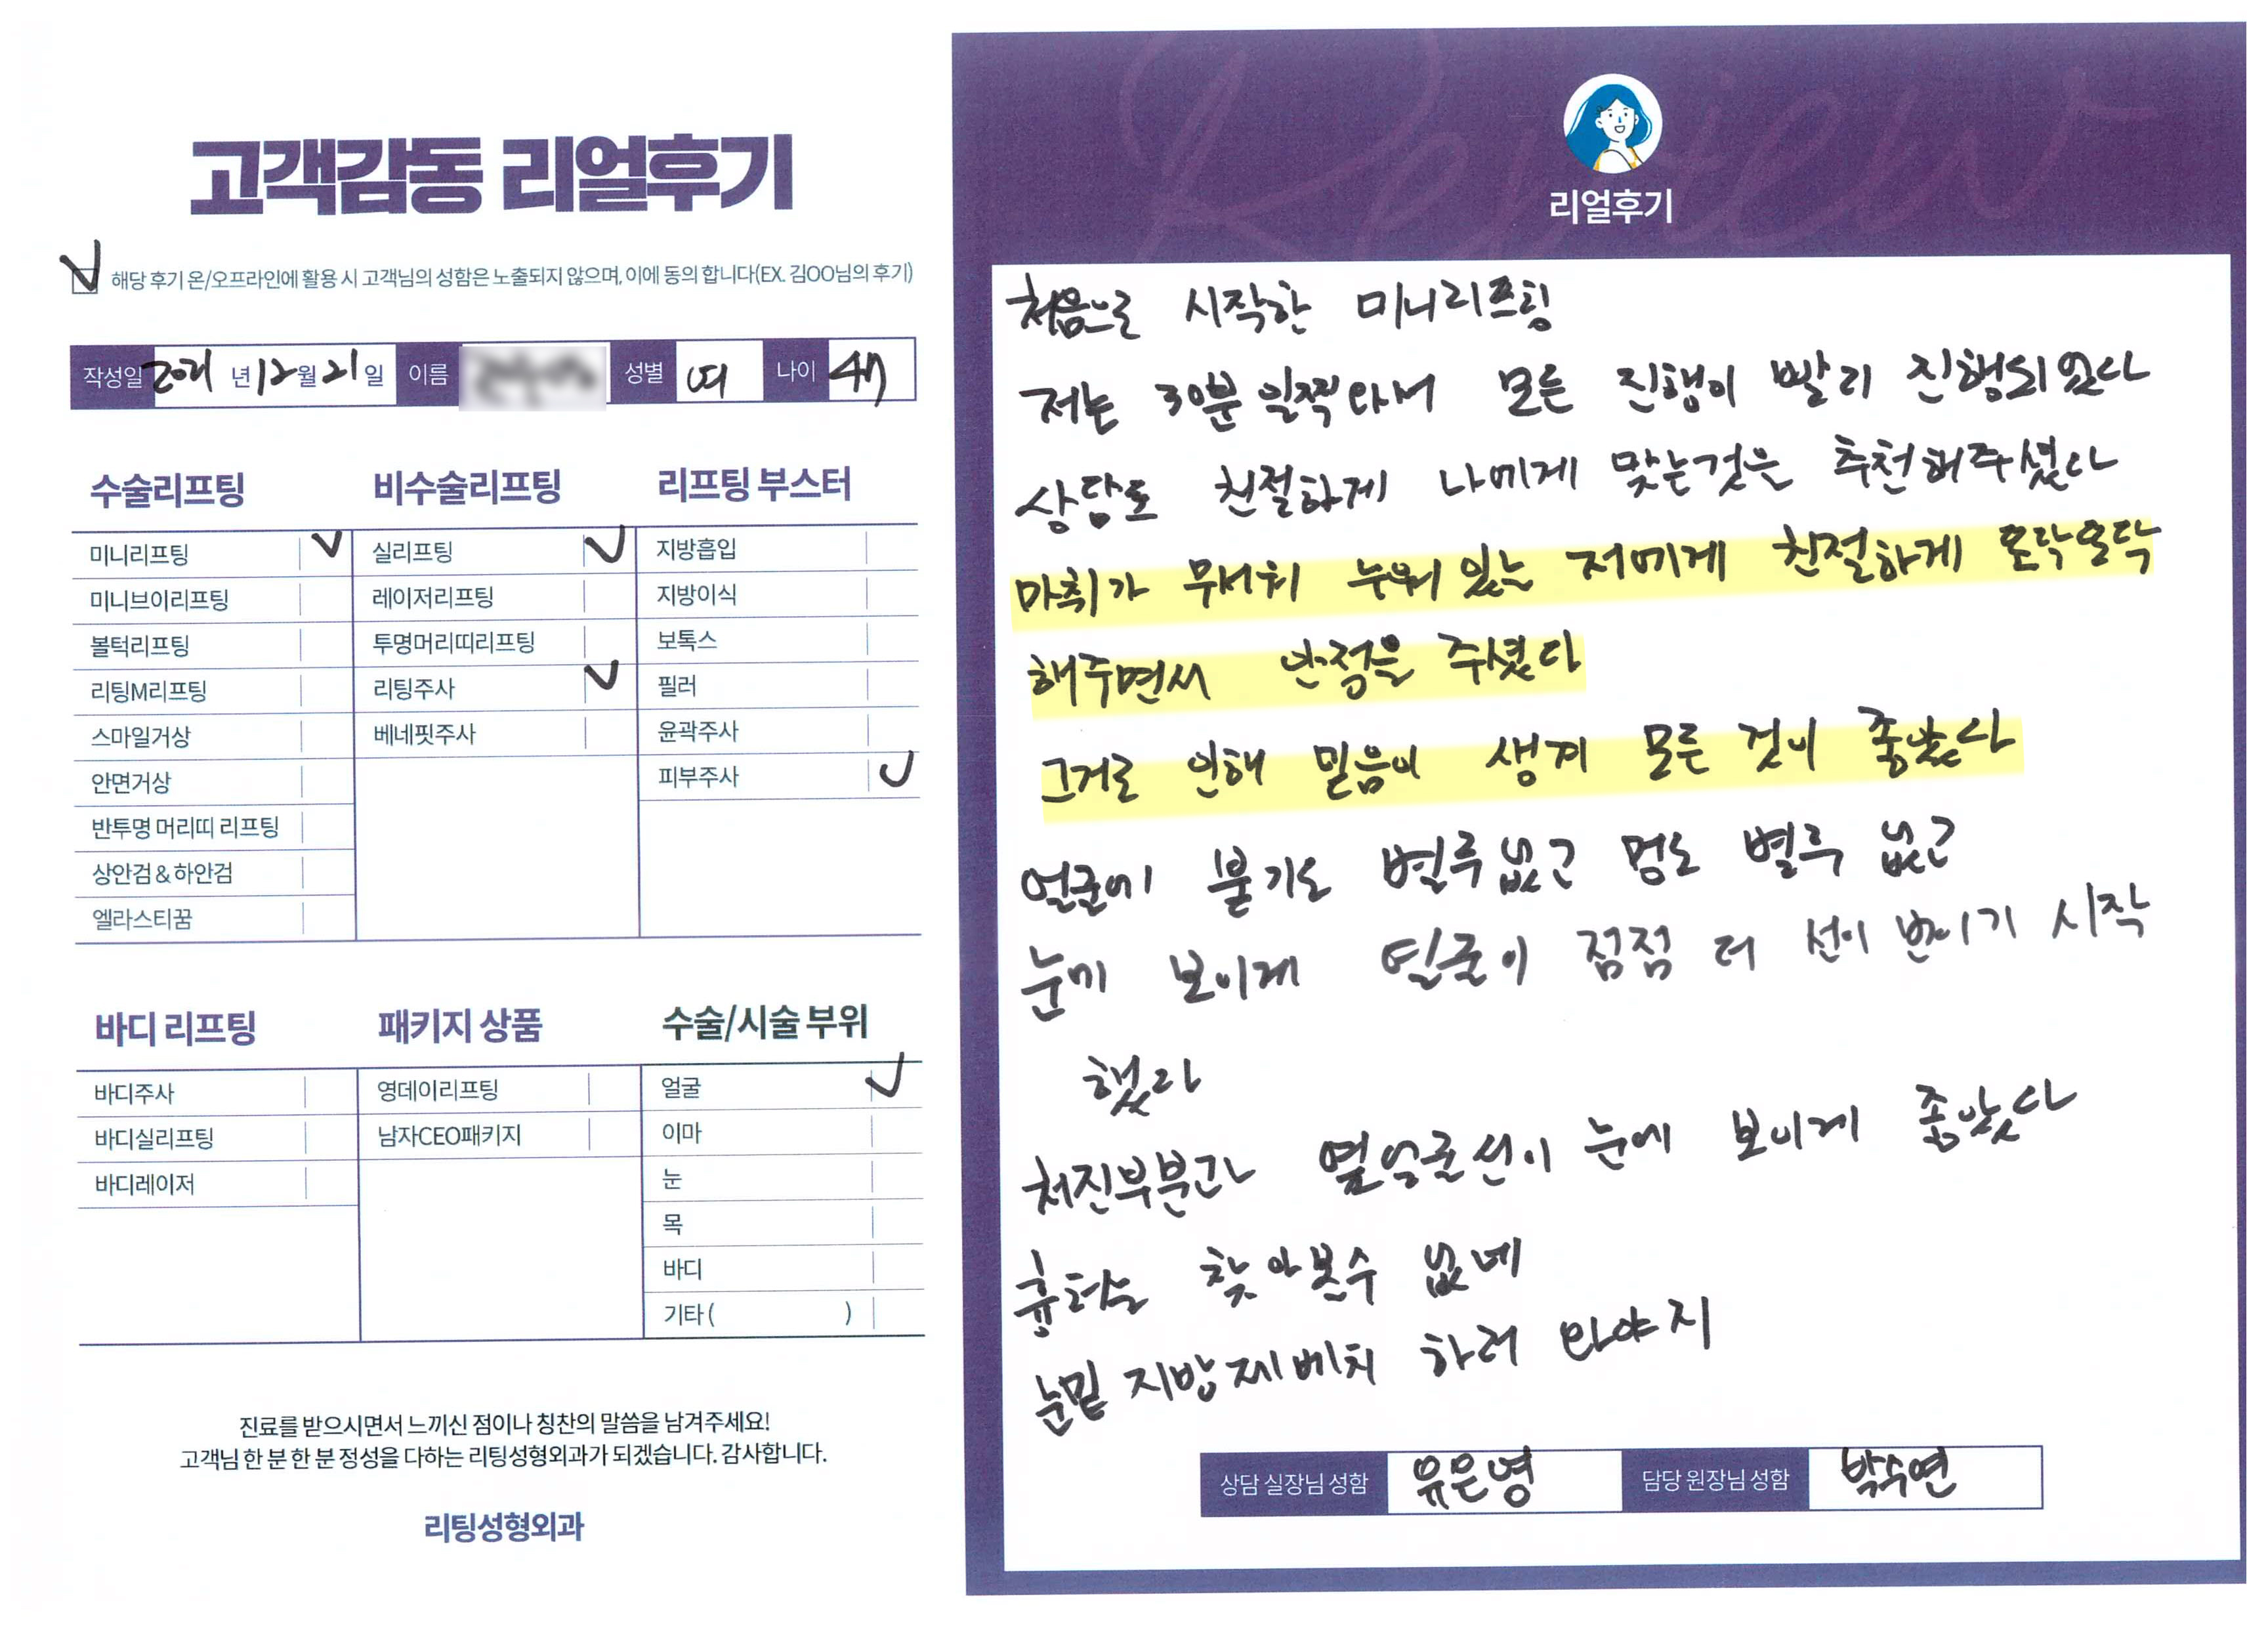 고객감동 리얼후기
해당 후기 온/오프라인에 활용 시 고객님의 성함은 노출되지 않으며, 이에 동의 합니다(EX. 김OO님의 후기)
작성일 2021 년 12월 21일 이름 성별 여 나이 47
수술리프팅
미니리프팅
미니브이리프팅
볼턱리프팅
리팅M리프팅
스마일거상
안면거상
반투명 머리띠 리프팅
상안검 & 하안검
엘라스티꿈
비수술리프팅
실리프팅
레이저리프팅
투명머리띠리프팅
리팅주사
베네핏주사
리프팅 부스터
지방흡입
지방이식
보톡스
필러
윤곽주사
피부주사
바디 리프팅
바디주사
바디실리프팅
바디레이저
패키지 상품
영데이리프팅
남자CEO패키지
수술/시술 부위
얼굴
이마
눈
목
바디
기타 ( )
진료를 받으시면서 느끼신 점이나 칭찬의 말씀을 남겨주세요!
고객님 한 분 한 분 정성을 다하는 리팅성형외과가 되겠습니다. 감사합니다.
리팅성형외과
Review
리얼후기
처음으로 시작한 미니리프팅
저는 30분 일찍와서 모든 진행이 빨리 진행되었다
상담도 친절하게 나에게 맞는것은 추천해주셨다
마취가 무서워 누워 있는 저에게 친절하게 토닥토닥
해주면서 안정을 주셨다
그거로 인해 믿음이 생겨 모든 것이 좋았다
얼굴에 붙기도 별루없고 멍도 별루 없고
눈에 보이게 얼굴이 점점 더 선이 보이기 시작
했다
처진부분과 옆얼굴선이 눈에 보이게 좋았다
흉터는 찾아볼수 없네
눈밑 지방재배치 하러 와야지
상담 실장님 성함 유은영 담당 원장님 성함 박수연